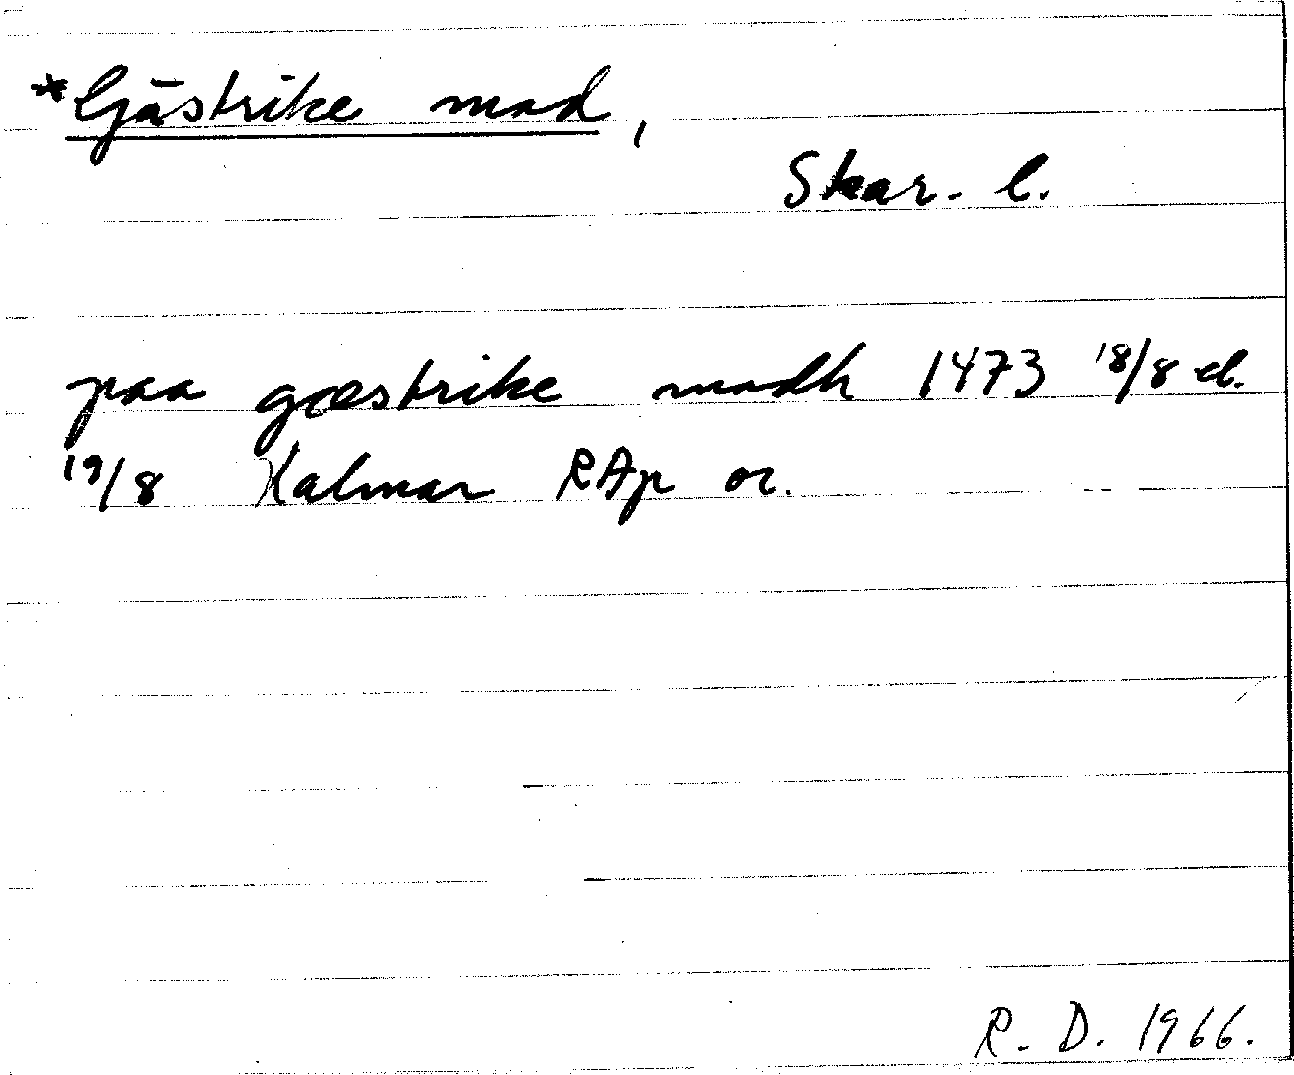 *Gästrike mad,
Skar. l.
paa gæstrike madh 1473 18/8 el.
19/8 Kalmar RAp or.
R. D. 1966.